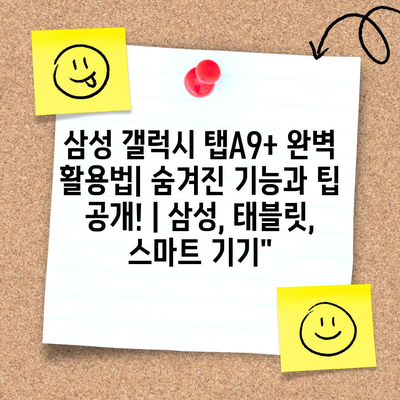 삼성 갤럭시 탭A9+ 완벽
활용법| 숨겨진 기능과 팁
공개! | 삼성, 태블릿,
스마트 기기"